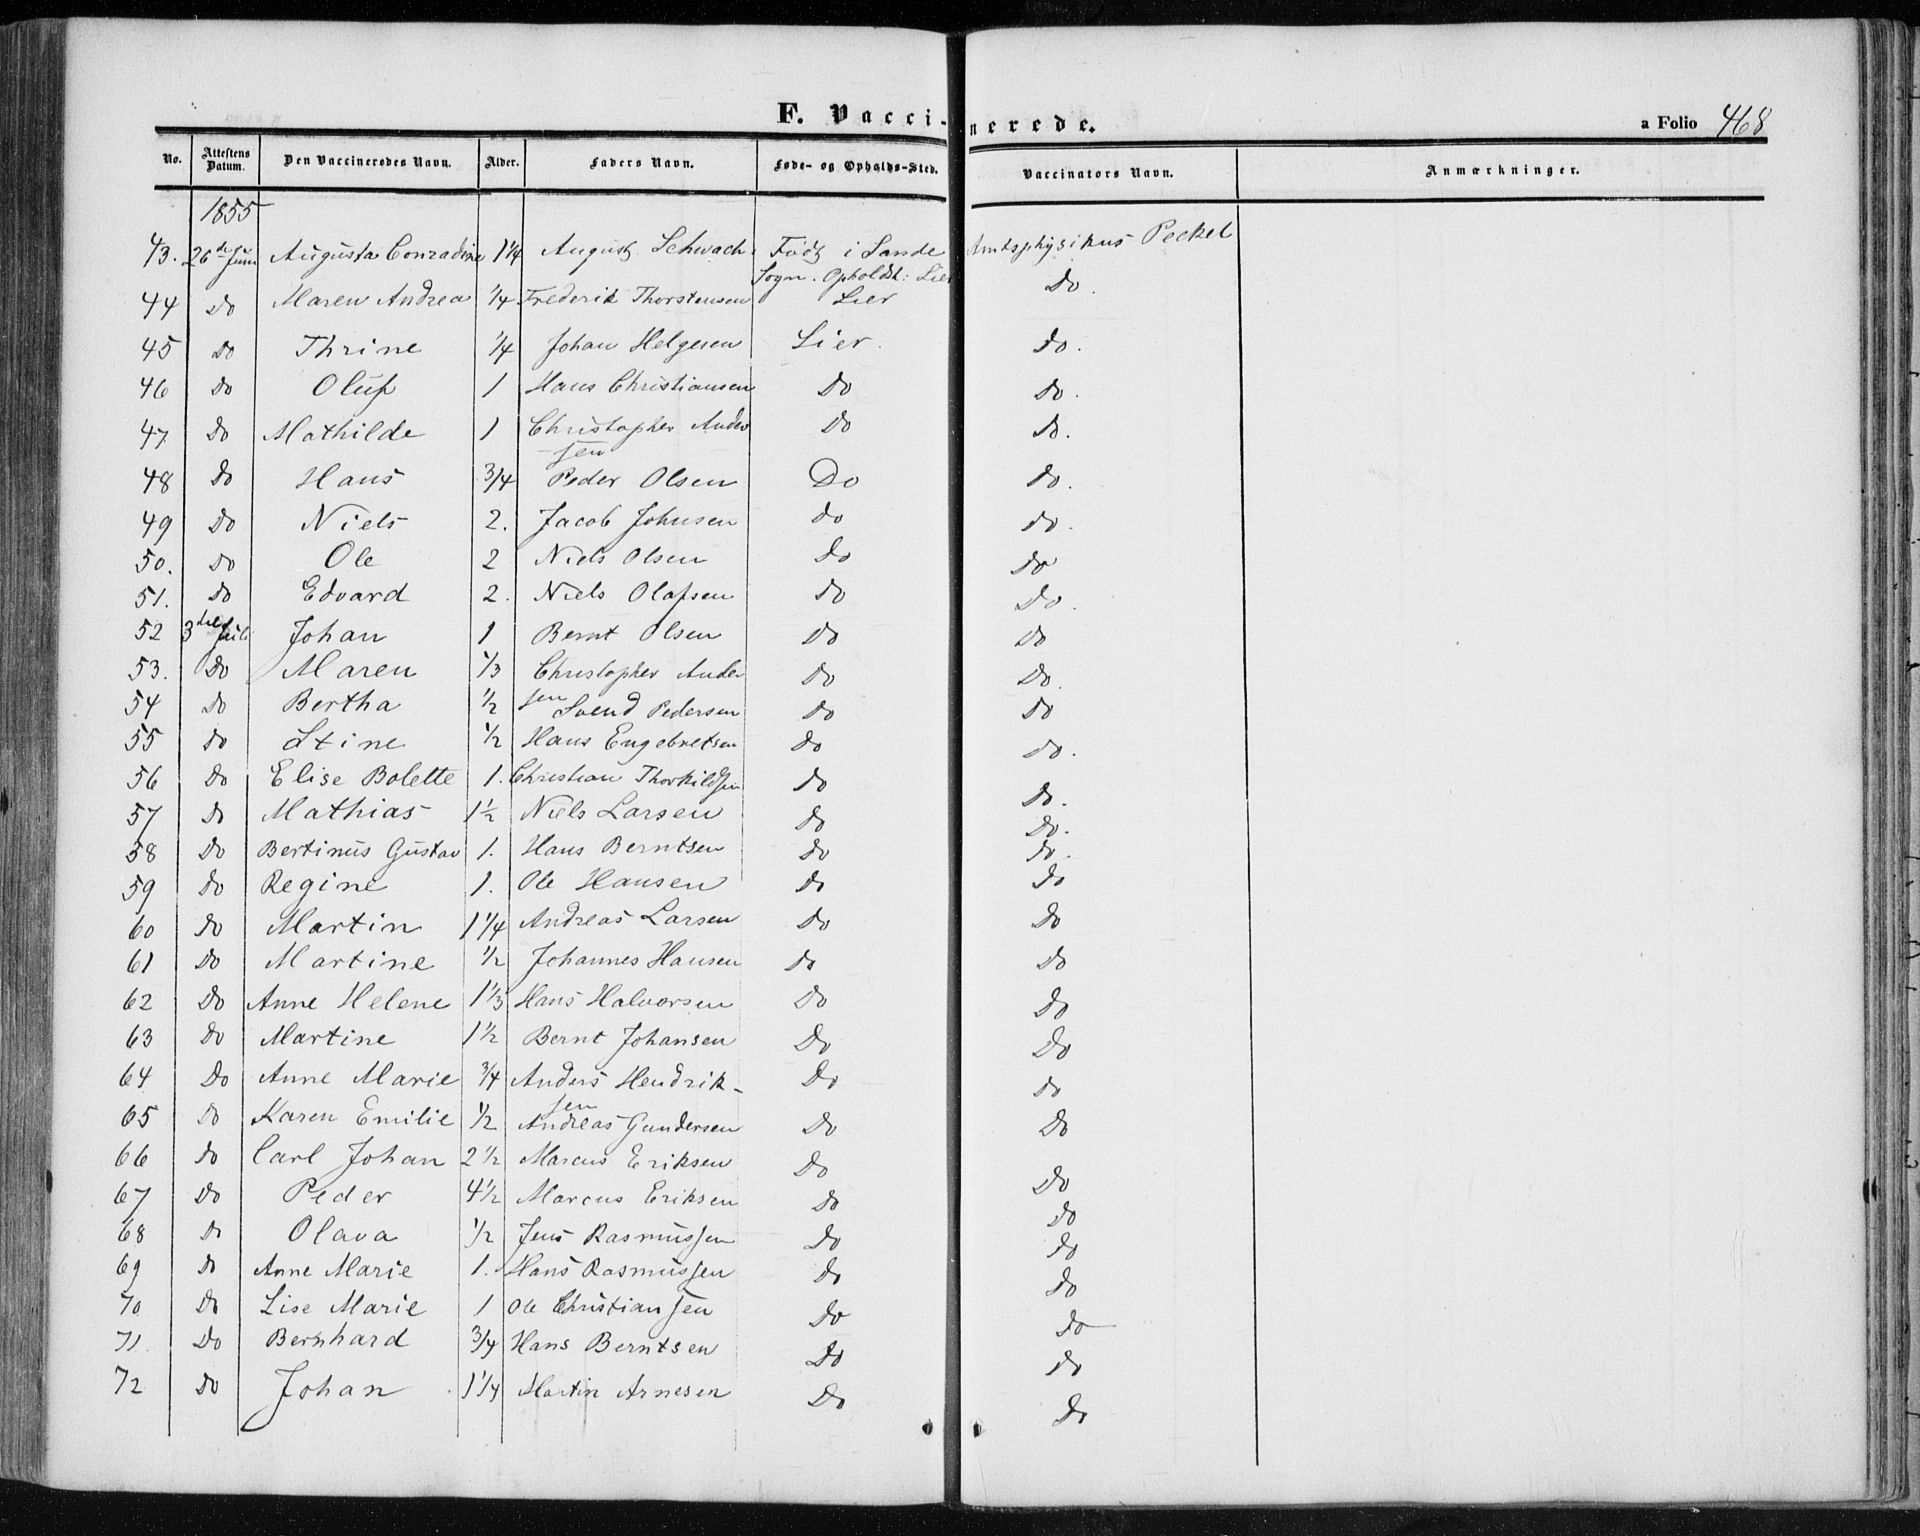 F. Vaccinerede.
a Folio 468
No. Attestens Datum. Den Vaccineredes Navn. Alder. Faders Navn. Føde- og Opholds-Sted. Vaccinators Navn. Anmærkninger.
1855
43. 26de Juni Augusta Conradine 1 1/4 August Schwach Født i Sande Amtsphysikus Peckel
Sogn. Opholdst: Lier
44 Do Maren Andrea 1/4 Frederik Thorstensen Lier Do.
45 Do Thrine 1/4 Johan Helgesen Lier. Do.
46 Do Oluf 1 Hans Christiansen Do Do.
47 Do Mathilde 1 Christopher Ander Do Do.
-sen
48 Do Hans 3/4 Peder Olsen Do Do.
49 Do Niels 2. Jacob Johnsen Do Do.
50. Do Ole 2 Niels Olsen Do Do
51. Do Edvard 2. Niels Olafsen Do Do.
52 3die Juli Johan 1 Bernt Olsen Do Do
53. Do Maren 1/3 Christopher Ander Do Do.
54 Do Bertha 1/2 sen Svend Pedersen Do Do
55 Do Stine 1/2 Hans Engebretsen Do Do.
56 Do Elise Bolette 1. Christian Thorkildsen Do Do.
57 Do Mathias 1 1/2 Niels Larsen Do Do.
58 Do Bertinus Gustav 1. Hans Berntsen Do Do.
59 Do Regine 1. Ole Hansen Do Do
60 Do Martin 1 1/4 Andreas Larsen Do Do
61 Do Martine 1/2 Johannes Hansen Do Do
62 Do Anne Helene 1 1/3 Hans Halvorsen Do Do
63 Do Martine 1 1/2 Bernt Johansen Do Do
64 Do Anne Marie 3/4 Anders Hendrik- Do Do
sen
65 Do Karen Emilie 1/2 Andreas Gundersen Do Do
66 Do Carl Johan 2 1/2 Marcus Eriksen Do Do
67 Do Peder 4 1/2 Marcus Eriksen Do Do
68 Do Olava 1/2 Jens Rasmussen Do Do
69 Do Anne Marie 1. Hans Rasmussen Do Do
70 Do Lise Marie 1 Ole Christiansen Do Do
71. Do Bernhard 3/4 Hans Berntsen Do Do
72 Do Johan 1 1/4 Martin Arnesen Do Do